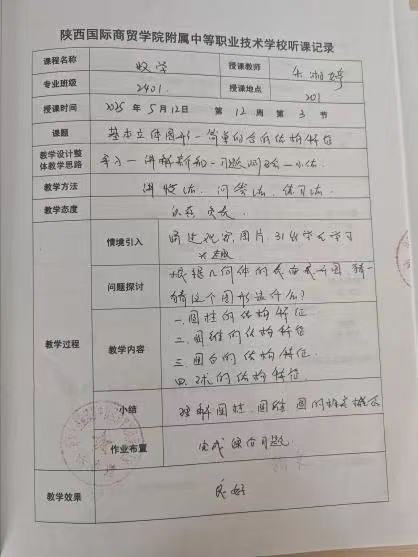 陕西国际商贸学院附属中等职业技术学校听课记录
课程名称 数学 授课教师
专业班级 2401. 授课地点 201
授课时间 2025 年 5 月 12日 第 12 周 第 3 节
课题 基本立体图形—简单的 结构特征
教学设计整体教学思路 导入—讲解新知—习题巩固—小结.
教学方法 讲授法. 问答法. 练习法.
教学态度
教学过程
情境引入 通过视频,图片,引出学生学习
兴趣
问题探讨 根据几何体的表面展开图 猜一
猜这个图形是什么?
教学内容 一.圆柱的结构特征
二.圆锥的结构特征
三.圆台的结构特征.
四.球的结构特征.
小结 理解圆柱.圆锥 圆 概念
作业布置 完成课后习题.
教学效果 良好